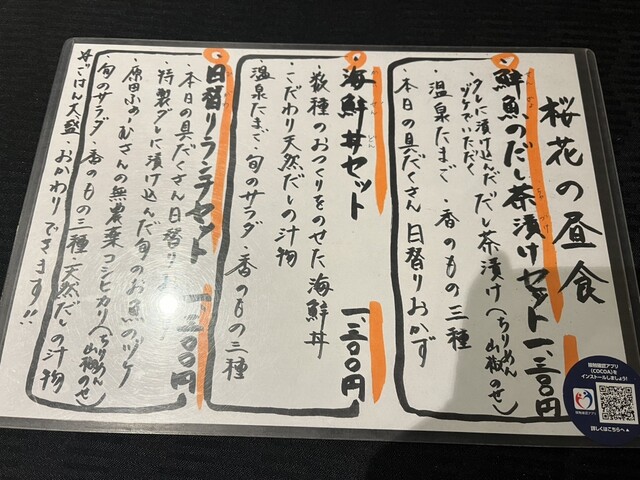 桜花の昼食
鮮魚のだし茶漬けセット 一、三〇〇円
・タレに漬け込んだだし茶漬け(ちりめん山椒のせ)
ヅケでいただく
・温泉たまご・香のもの三種
・本日の具だくさん日替りおかず
海鮮丼セット 一、三〇〇円
・数種のおつくりをのせた海鮮丼
・こだわり天然だしの汁物
・温泉たまご・旬のサラダ・香のもの三種
日替りランチセット 一、三〇〇円
・本日の具だくさん日替り
・特製ダレに漬け込んだ旬のお魚のヅケ
・原田ふぁーむさんの無農薬コシヒカリ(ちりめん山椒のせ)
・旬のサラダ・香のもの三種・天然だしの汁物
※ごはん大盛、おかわりできます!!
接触確認アプリ
(COCOA)を
インストールしましょう!
接触確認アプリ
詳しくはこちらへ▲